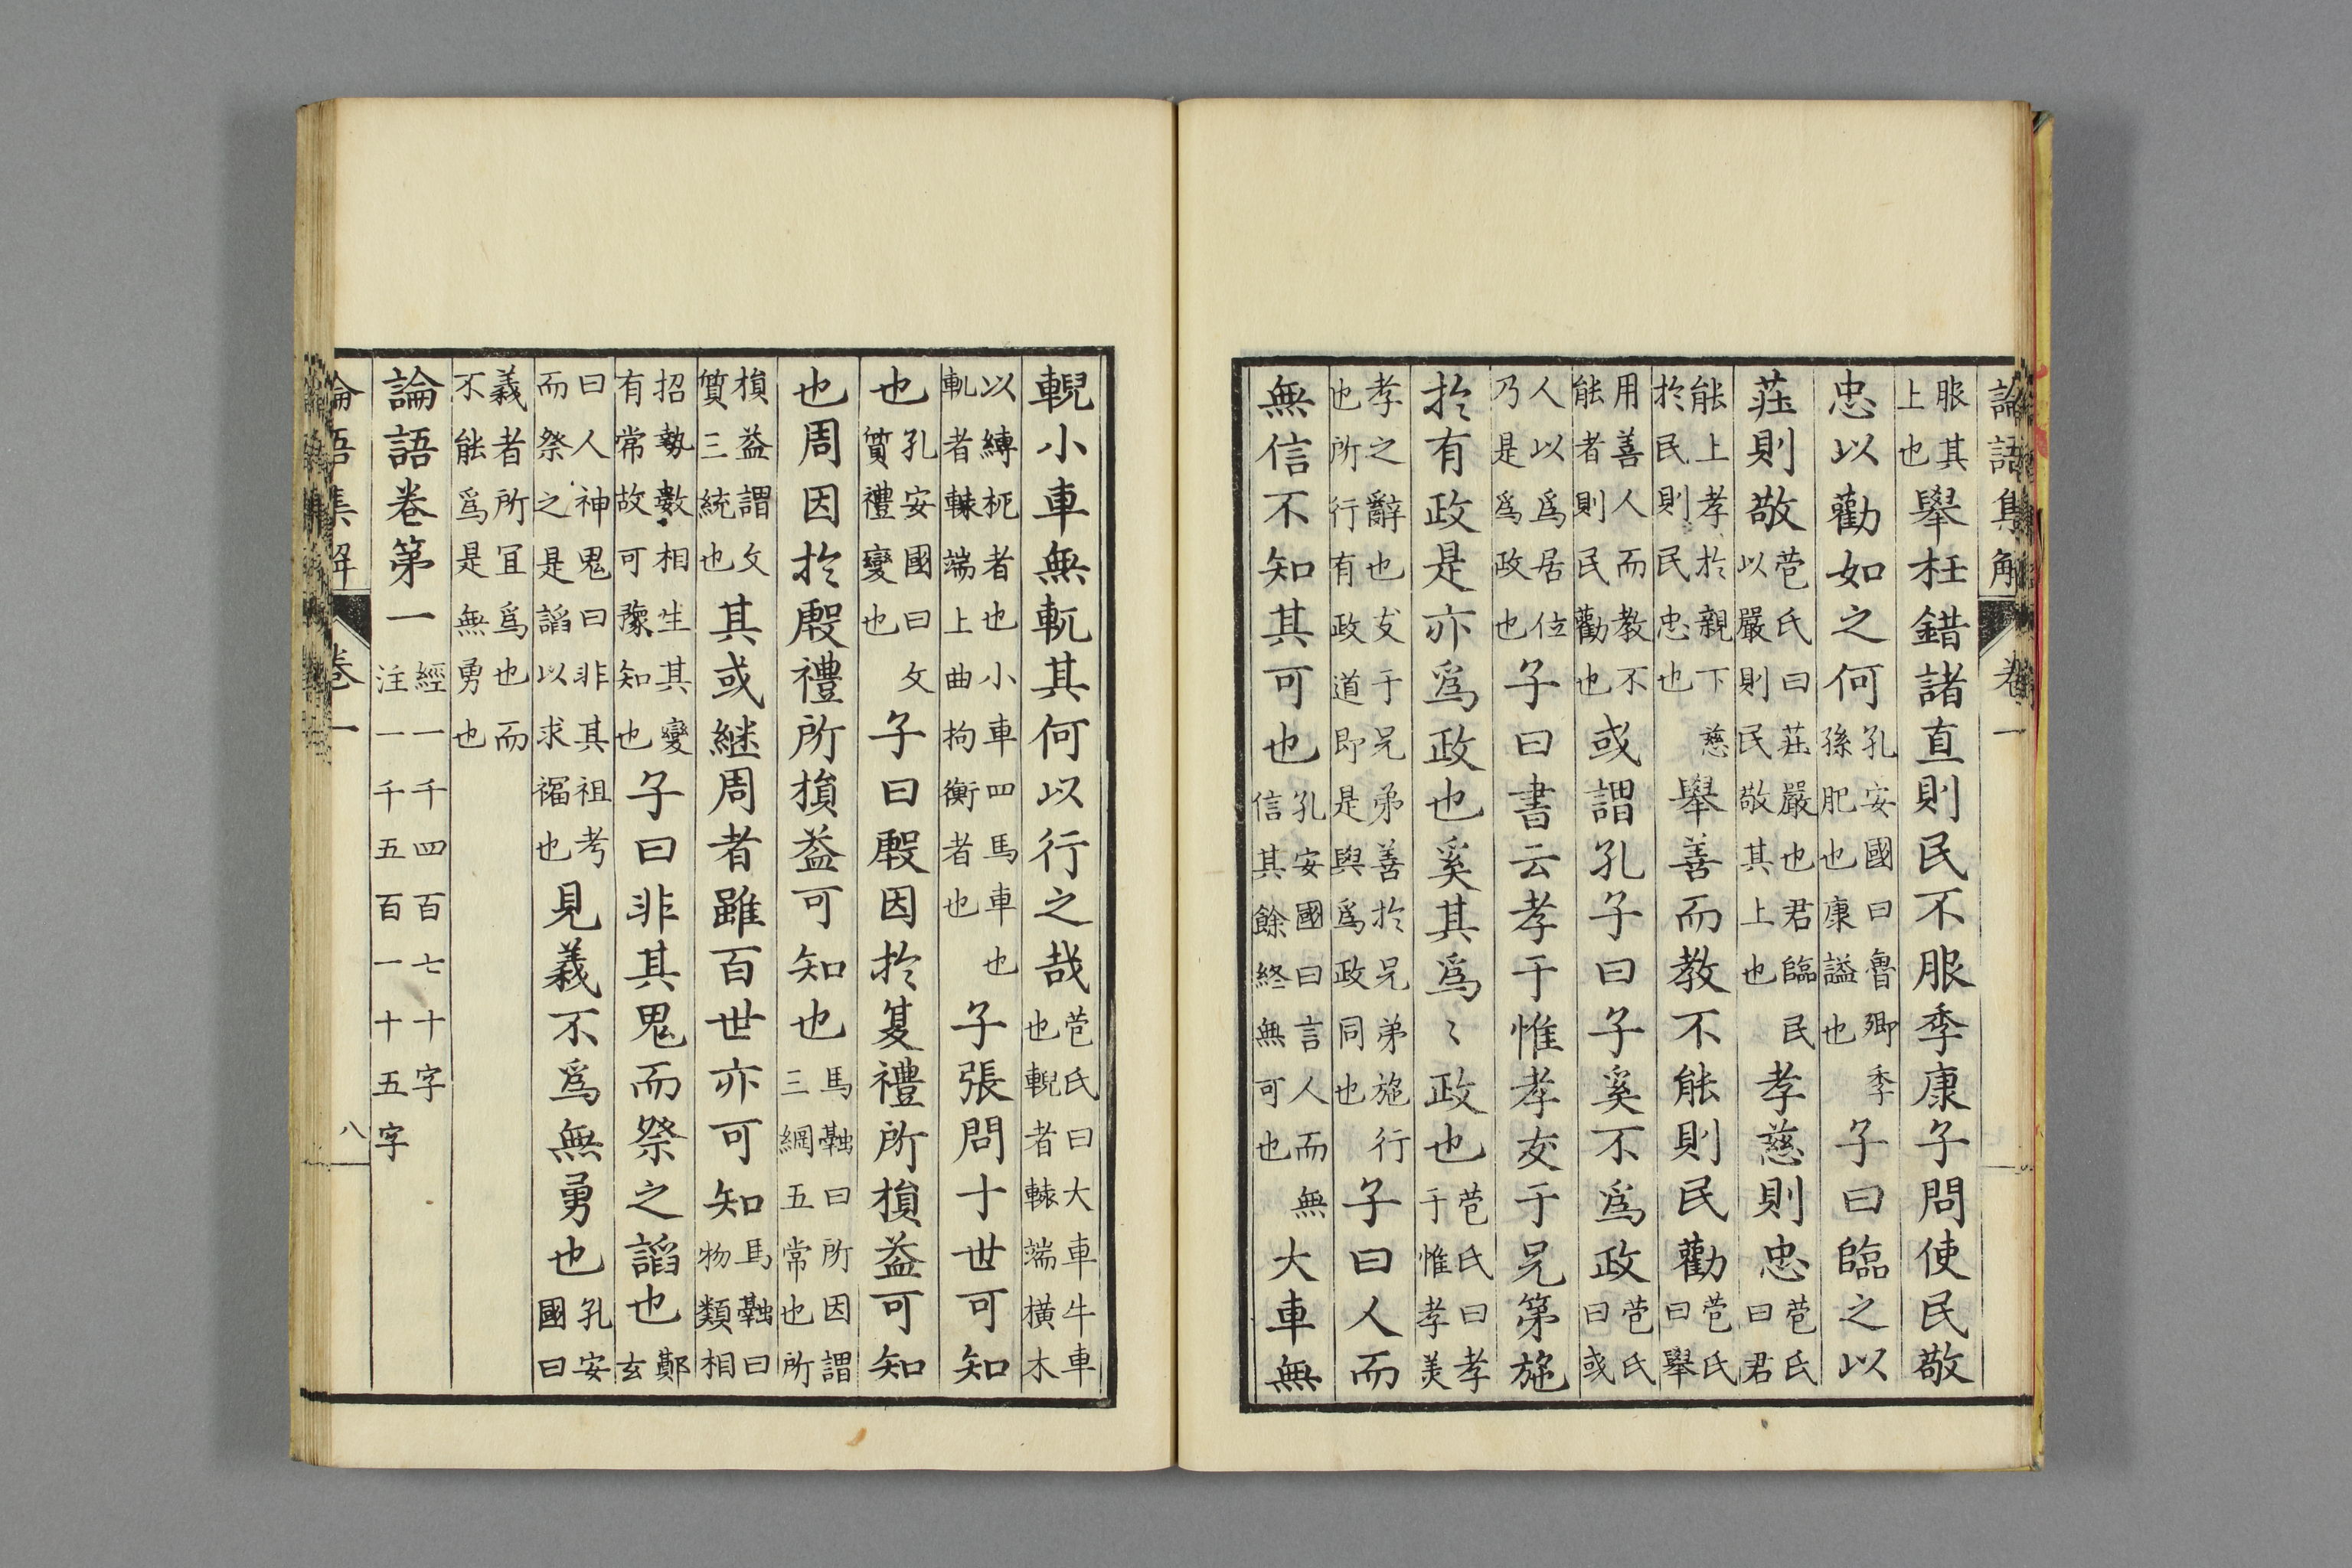 論語集解 卷一
服其上也舉枉錯諸直則民不服季康子問使民敬
忠以勸如之何孔安國曰魯卿季孫肥也康謚也子曰臨之以
莊則敬苞氏曰莊嚴也君臨民以嚴則民敬其上也孝慈則忠苞氏曰君
能上孝於親下慈於民則民忠也舉善而教不能則民勸苞氏曰舉
用善人而教不能者則民勸也或謂孔子曰子奚不爲政苞氏曰或
人以爲居位乃是爲政也子曰書云孝于惟孝友于兄第施
於有政是亦爲政也奚其爲〻政也苞氏曰孝于惟孝美
孝之辭也友于兄弟善於兄弟施行也所行有政道即是與爲政同也子曰人而
無信不知其可也孔安國曰言人而無信其餘終無可也大車無
輗小車無軏其何以行之哉苞氏曰大車牛車也輗者轅端橫木
以縛枙者也小車四馬車也軏者轅端上曲拘衡者也子張問十世可知
也孔安國曰文質禮變也子曰殷因於夏禮所損益可知
也周因於殷禮所損益可知也馬融曰所因謂三綱五常也所
損益謂文質三統也其或継周者雖百世亦可知馬融曰物類相
招勢數相生其變有常故可豫知也子曰非其鬼而祭之諂也鄭玄
曰人神鬼曰非其祖考而祭之是諂以求福也見義不爲無勇也孔安國曰
義者所宜爲也而不能爲是無勇也
論語卷第一 經一千四百七十字 注一千五百一十五字
論語集解 卷一 八